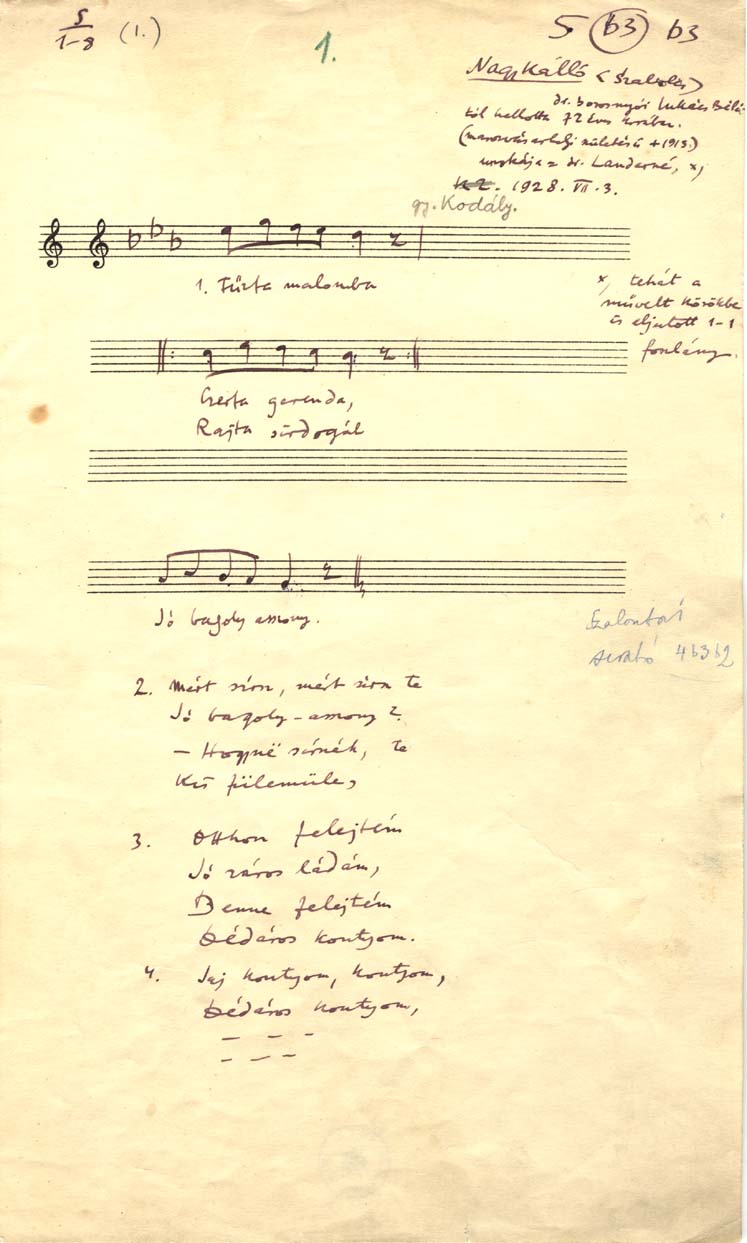 5/1-8 (1.)
1.
5 b3 b3
Nagykálló (Szabolcs)
dr. borosnyói Lukács Bélá-
tól hallotta 72 éves korában.
(marosvásárhelyi születésű +1913.)
unokája = dr. Landerné, x,
1928. VII. 3.
gy. Kodály.
1. Fürta malomba
x, tehát a
művelt körökbe
is eljutott 1-1
foszlány.
Cserfa gerenda,
Rajta sírdogál
Jó bagoly asszony.
Szalontai
4 b3 b2
2. Mért sírsz, mért sírsz te
Jó bagoly-asszony?
— Hogyně sírnék, te
Kis fülemüle,
3. Otthon felejtém
Jó záros ládám,
Benne felejtém
Dédáros kontyom.
4. Jaj kontyom, kontyom,
Dédáros kontyom,
— — —
— — —